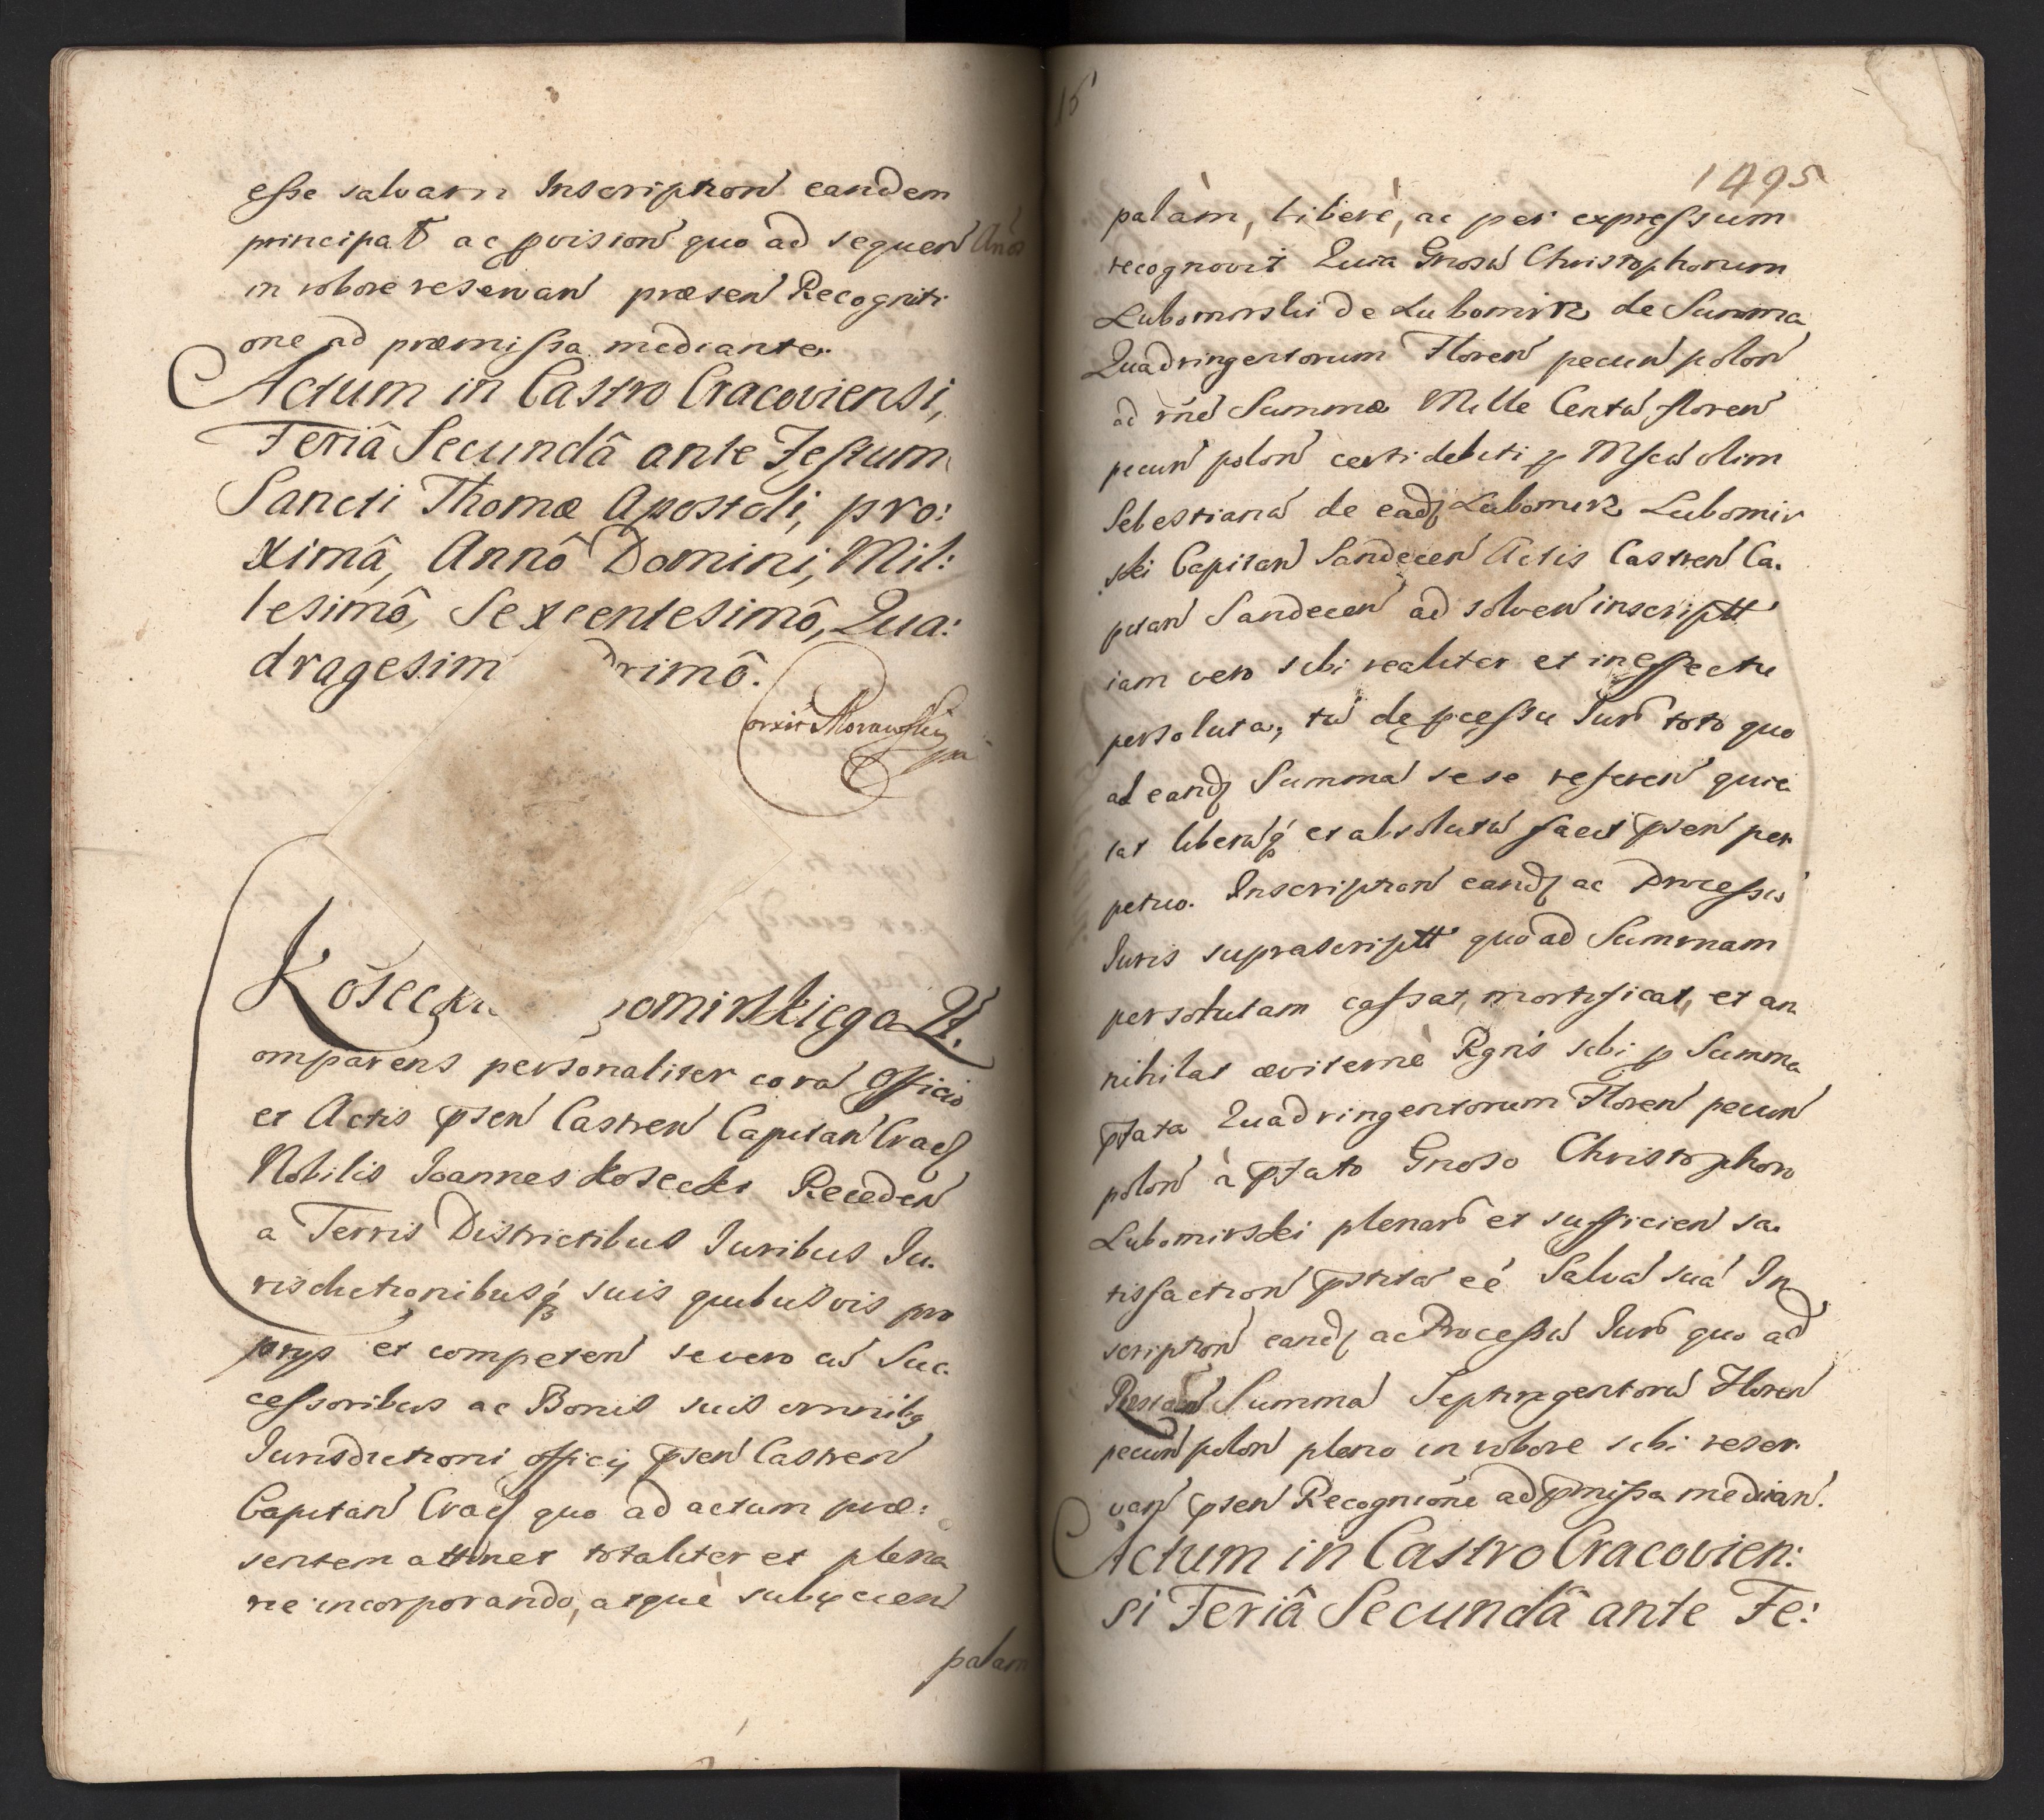 esse salvam Inscription eandem
principal ac pvision quo ad sequen Anos
in robore reservan præsen Recogniti
one ad præmissa mediante.
Actum in Castro Cracoviensi,
Feriâ Secundâ ante Festum
Sancti Thomæ Apostoli, pro:
ximâ, Annô Domini, Mil:
lesimô, Sexcentesimô, Qua:
dragesim rimô.
Morawsky
Kosecki omirskiego Qt.
omparens personaliter cora Officio
et Actis psen Castren Capitan Crac
Nobilis Joannes Kosecki Receden
a Terris Districtibus Juribus Ju.
risdictionibusq suis quibusvis pro
prys et competen se vero cu Suc.
cessoribus ac Bonis suis omnibq
Jurisdictioni officy psen Castren
Capitan Crac quo ad actum præ:
sentem attinet totaliter et plena
rie incorporando, atquè subycien
palam
15
1495
palàm, liberè, ac per expressum
recognovit Quia Gnosu Christophorum
Lubomirski de Lubomirz de Summa
Quadringentorum Floren pecun polon
ad rne Summæ Mille Centu floren
pecun polon certi debiti p Mfcu olim
Sebestianu de eadz Lubomirz Lubomir
ski Capitan Sandecen Actis Castren Ca.
pitan Sandecen ad solven inscriptt
iam vero sibi realiter et in effectu
persoluta, tu de pcessu Juris toto quo
ad eandz Summa sese referen quie
tat liberuq et absolutu facit psen per
petuo. Inscription eandz ac Processu
Juris suprascriptt quo ad Summam
persolutam cassat, mortificat, et an
nihilat æviternè Rgnis sibi p Summa
pfata Quadringentorum Floren pecun
polon à pfato Gnoso Christophoro
Lubomirski plenar et sufficien sa.
tisfaction pstita eé Salva sua In
scription eandz ac Processu Juris quo ad
Summa Septingentoru Floren
pecun polon pleno in robore sibi reser
van psen Recognicône ad pmissa median.
Actum in Castro Cracovien:
si Feriâ Secundâ ante Fe: